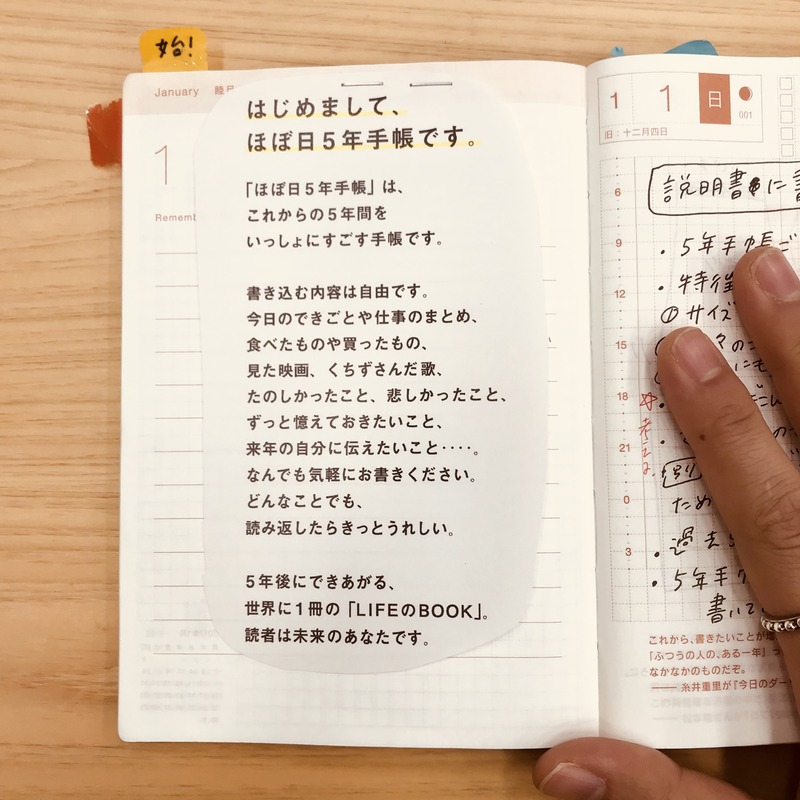 始!
January 睦月
1
はじめまして、
ほぼ日5年手帳です。
「ほぼ日5年手帳」は、
これからの5年間を
いっしょにすごす手帳です。
書き込む内容は自由です。
今日のできごとや仕事のまとめ、
食べたものや買ったもの、
見た映画、くちずさんだ歌、
たのしかったこと、悲しかったこと、
ずっと憶えておきたいこと、
来年の自分に伝えたいこと‥‥。
なんでも気軽にお書きください。
どんなことでも、
読み返したらきっとうれしい。
5年後にできあがる、
世界に1冊の「LIFEのBOOK」。
読者は未来のあなたです。
1 1 日
001
旧:十二月四日
説明書に
・5年手帳
・特徴
① サイズ
6
9
12
15
18
21
0
3
別
ため
・過去
・5年手
書いて
これから、書きたいことが
「ふつうの人の、ある一年」
なかなかのものだぞ。
——糸井重里が『今日のダー